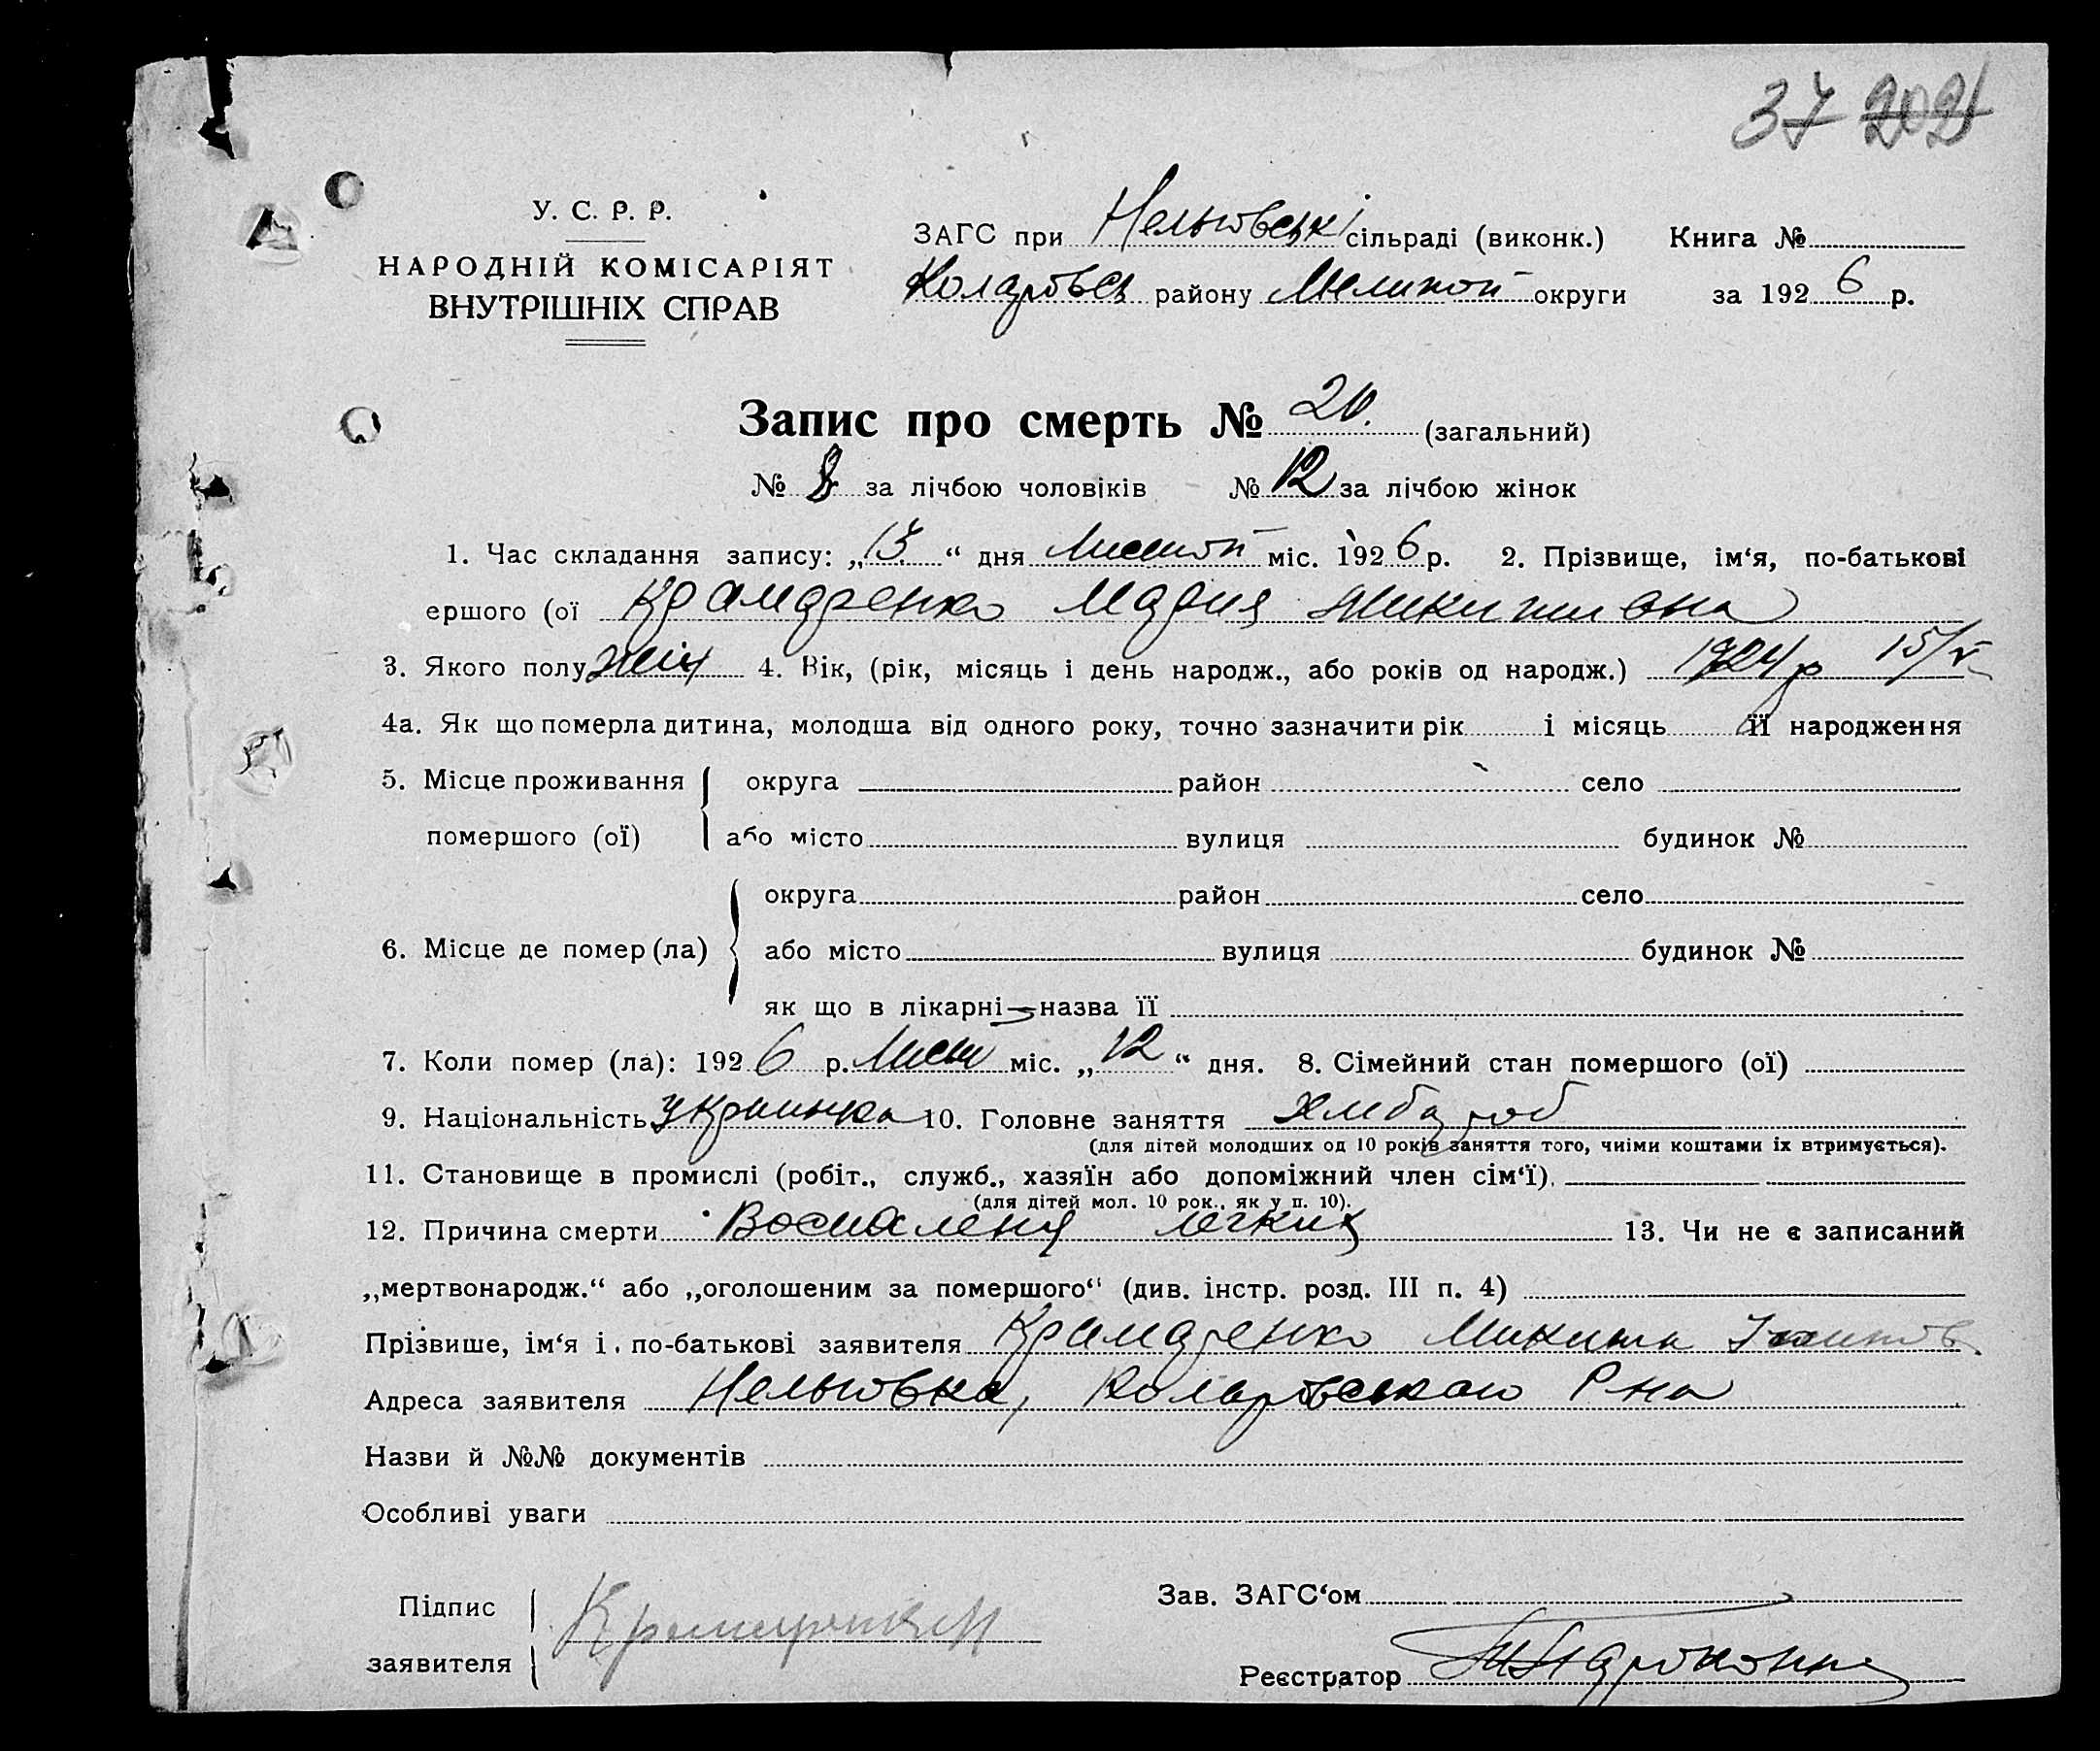 37 202
У. С. Р. Р.
НАРОДНІЙ КОМІСАРІЯТ
ВНУТРІШНІХ СПРАВ
ЗАГС при Нельговські сільраді (виконк.) Книга №
Коларовсь району Мелитоп округи за 1926 р.
Запис про смерть № 20. (загальний)
№ 8 за лічбою чоловіків № 12 за лічбою жінок
1. Час складання запису: „13.“ дня Листоп міс. 1926 р. 2. Прізвище, ім‘я, по-батькові
ершого (ої Крамаренко Мария Микитивна
3. Якого полу жіч 4. Вік, (рік, місяць і день народж., або років од народж.) 1924 р 15/V
4а. Як що померла дитина, молодша від одного року, точно зазначити рік і місяць її народження
5. Місце проживання округа район село
помершого (ої) або місто вулиця будинок №
округа район село
6. Місце де помер (ла) або місто вулиця будинок №
як що в лікарні—назва її
7. Коли помер (ла): 1926 р. Лист міс. „12“ дня. 8. Сімейний стан помершого (ої)
9. Національність украинка 10. Головне заняття хлибороб
(для дітей молодших од 10 років заняття того, чиїми коштами їх втримується).
11. Становище в промислі (робіт., служб., хазяїн або допоміжний член сім‘ї).
(для дітей мол. 10 рок., як у п. 10).
12. Причина смерти Воспаления легких 13. Чи не є записаний
„мертвонародж.“ або „оголошеним за помершого“ (див. інстр. розд. III п. 4)
Прізвише, ім‘я і по-батькові заявителя Крамаренко Микита
Адреса заявителя Нельговка, Коларовського Р на
Назви й №№ документів
Особливі уваги
Підпис
заявителя
Зав. ЗАГС‘ом
Реєстратор